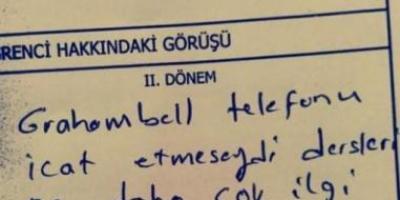 RENCİ HAKKINDAKİ GÖRÜŞÜ
II. DÖNEM
Grahombell telefonu
icat etmeseydi dersleri
daha çok ilgi